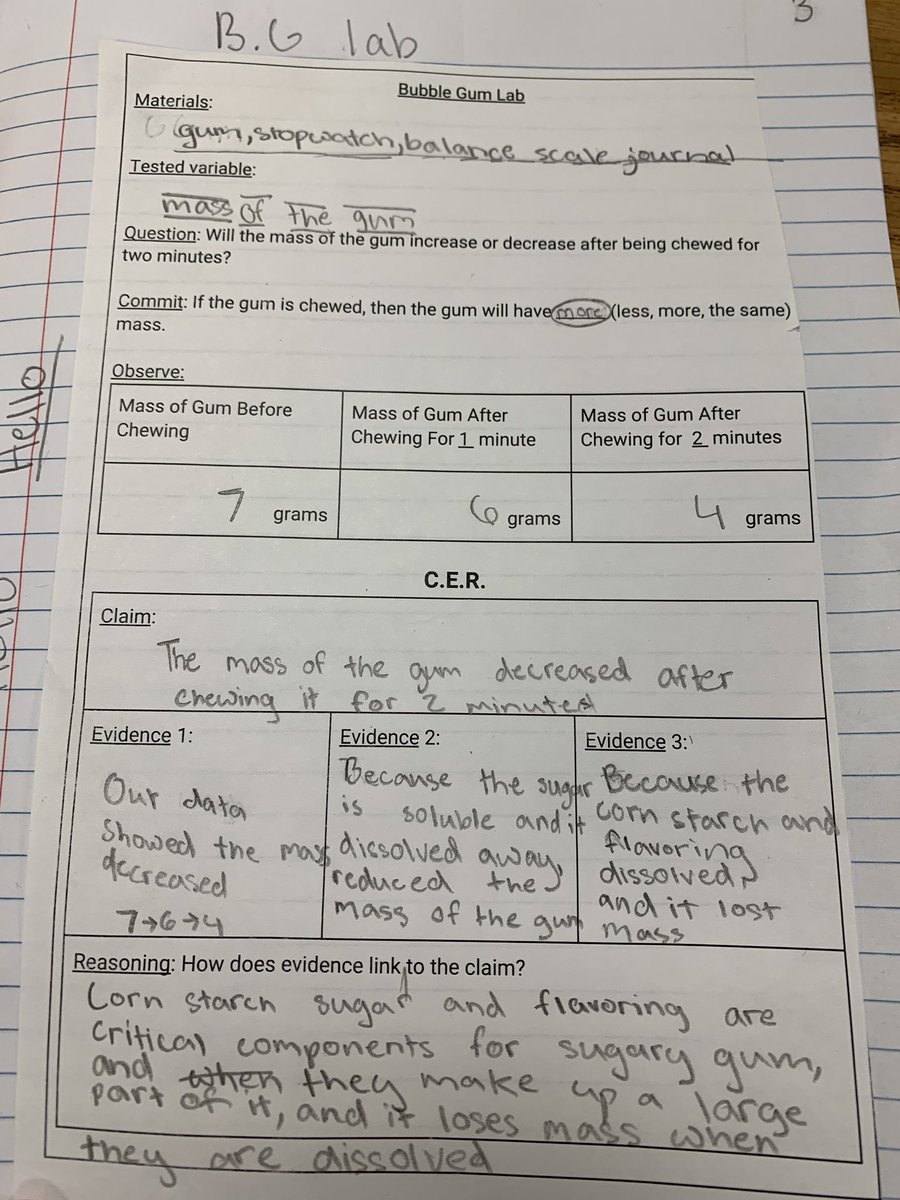 3
B.G lab
Bubble Gum Lab
Materials:
gum, stopwatch, balance scale journal
Tested variable:
mass of the gum
Question: Will the mass of the gum increase or decrease after being chewed for
two minutes?
Commit: If the gum is chewed, then the gum will have more (less, more, the same)
mass.
Helllo
Observe:
Mass of Gum Before
Chewing
Mass of Gum After
Chewing For 1 minute
Mass of Gum After
Chewing for 2 minutes
7 grams
6 grams
4 grams
C.E.R.
Claim:
The mass of the gum decreased after
chewing it for 2 minutes
Evidence 1:
Our data
showed the mass
decreased
7→6→4
Evidence 2:
Because the sugar
is soluble and it
dissolved away,
reduced the
mass of the gum
Evidence 3:
Because the
corn starch and
flavoring
dissolved,
and it lost
mass
Reasoning: How does evidence link to the claim?
Corn starch sugar and flavoring are
critical components for sugary gum,
and when they make up a large
part of it, and it loses mass when
they are dissolved